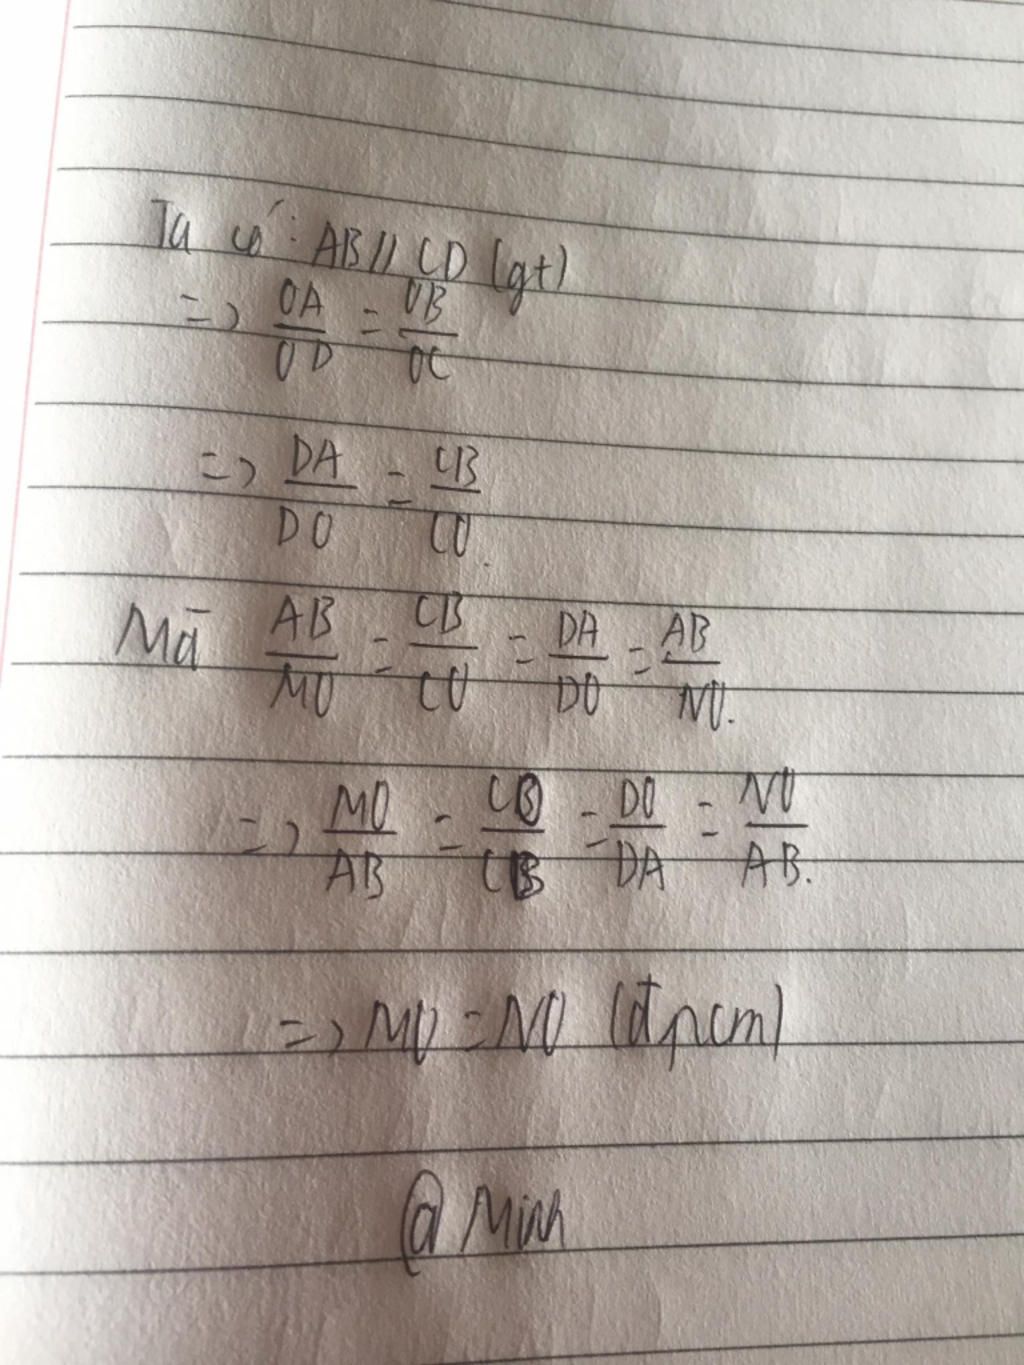 Ta có: AB // CD (gt)
=> OA/OD = OB/OC
=> DA/DO = CB/CO.
Mà AB/MO = CB/CO = DA/DO = AB/NO.
=> MO/AB = CO/CB = DO/DA = NO/AB.
=> MO = NO (đpcm)
@ Minh